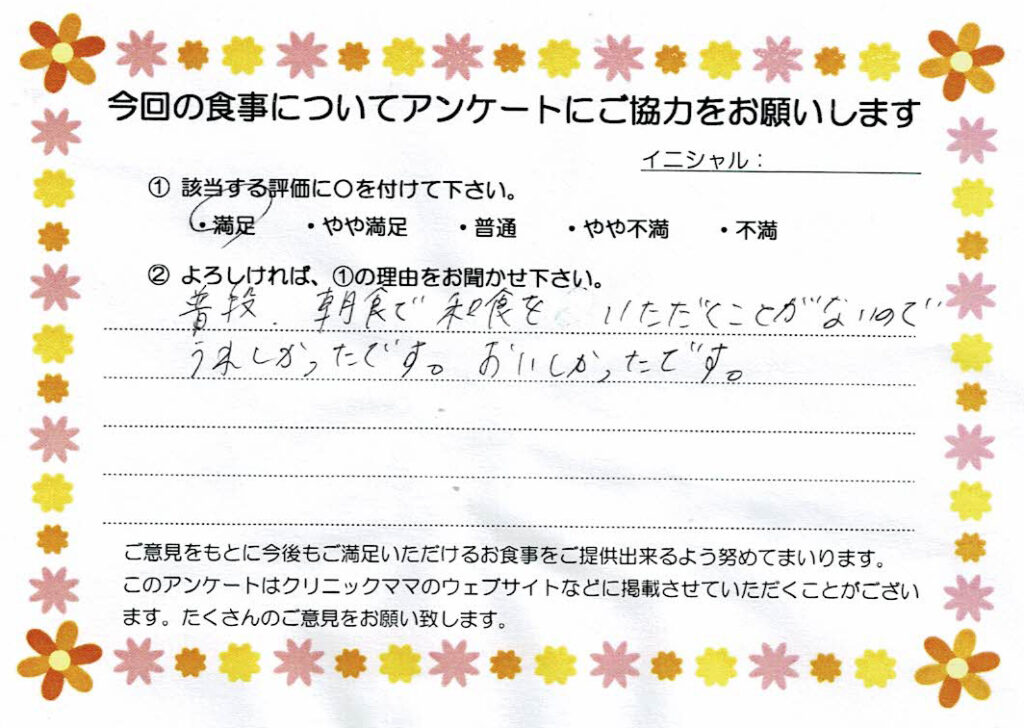 今回の食事についてアンケートにご協力をお願いします
イニシャル：
① 該当する評価に〇を付けて下さい。
・満足 ・やや満足 ・普通 ・やや不満 ・不満
② よろしければ、①の理由をお聞かせ下さい。
普段、朝食で和食をいただくことがないので
うれしかったです。おいしかったです。
ご意見をもとに今後もご満足いただけるお食事をご提供出来るよう努めてまいります。
このアンケートはクリニックママのウェブサイトなどに掲載させていただくことがござい
ます。たくさんのご意見をお願い致します。